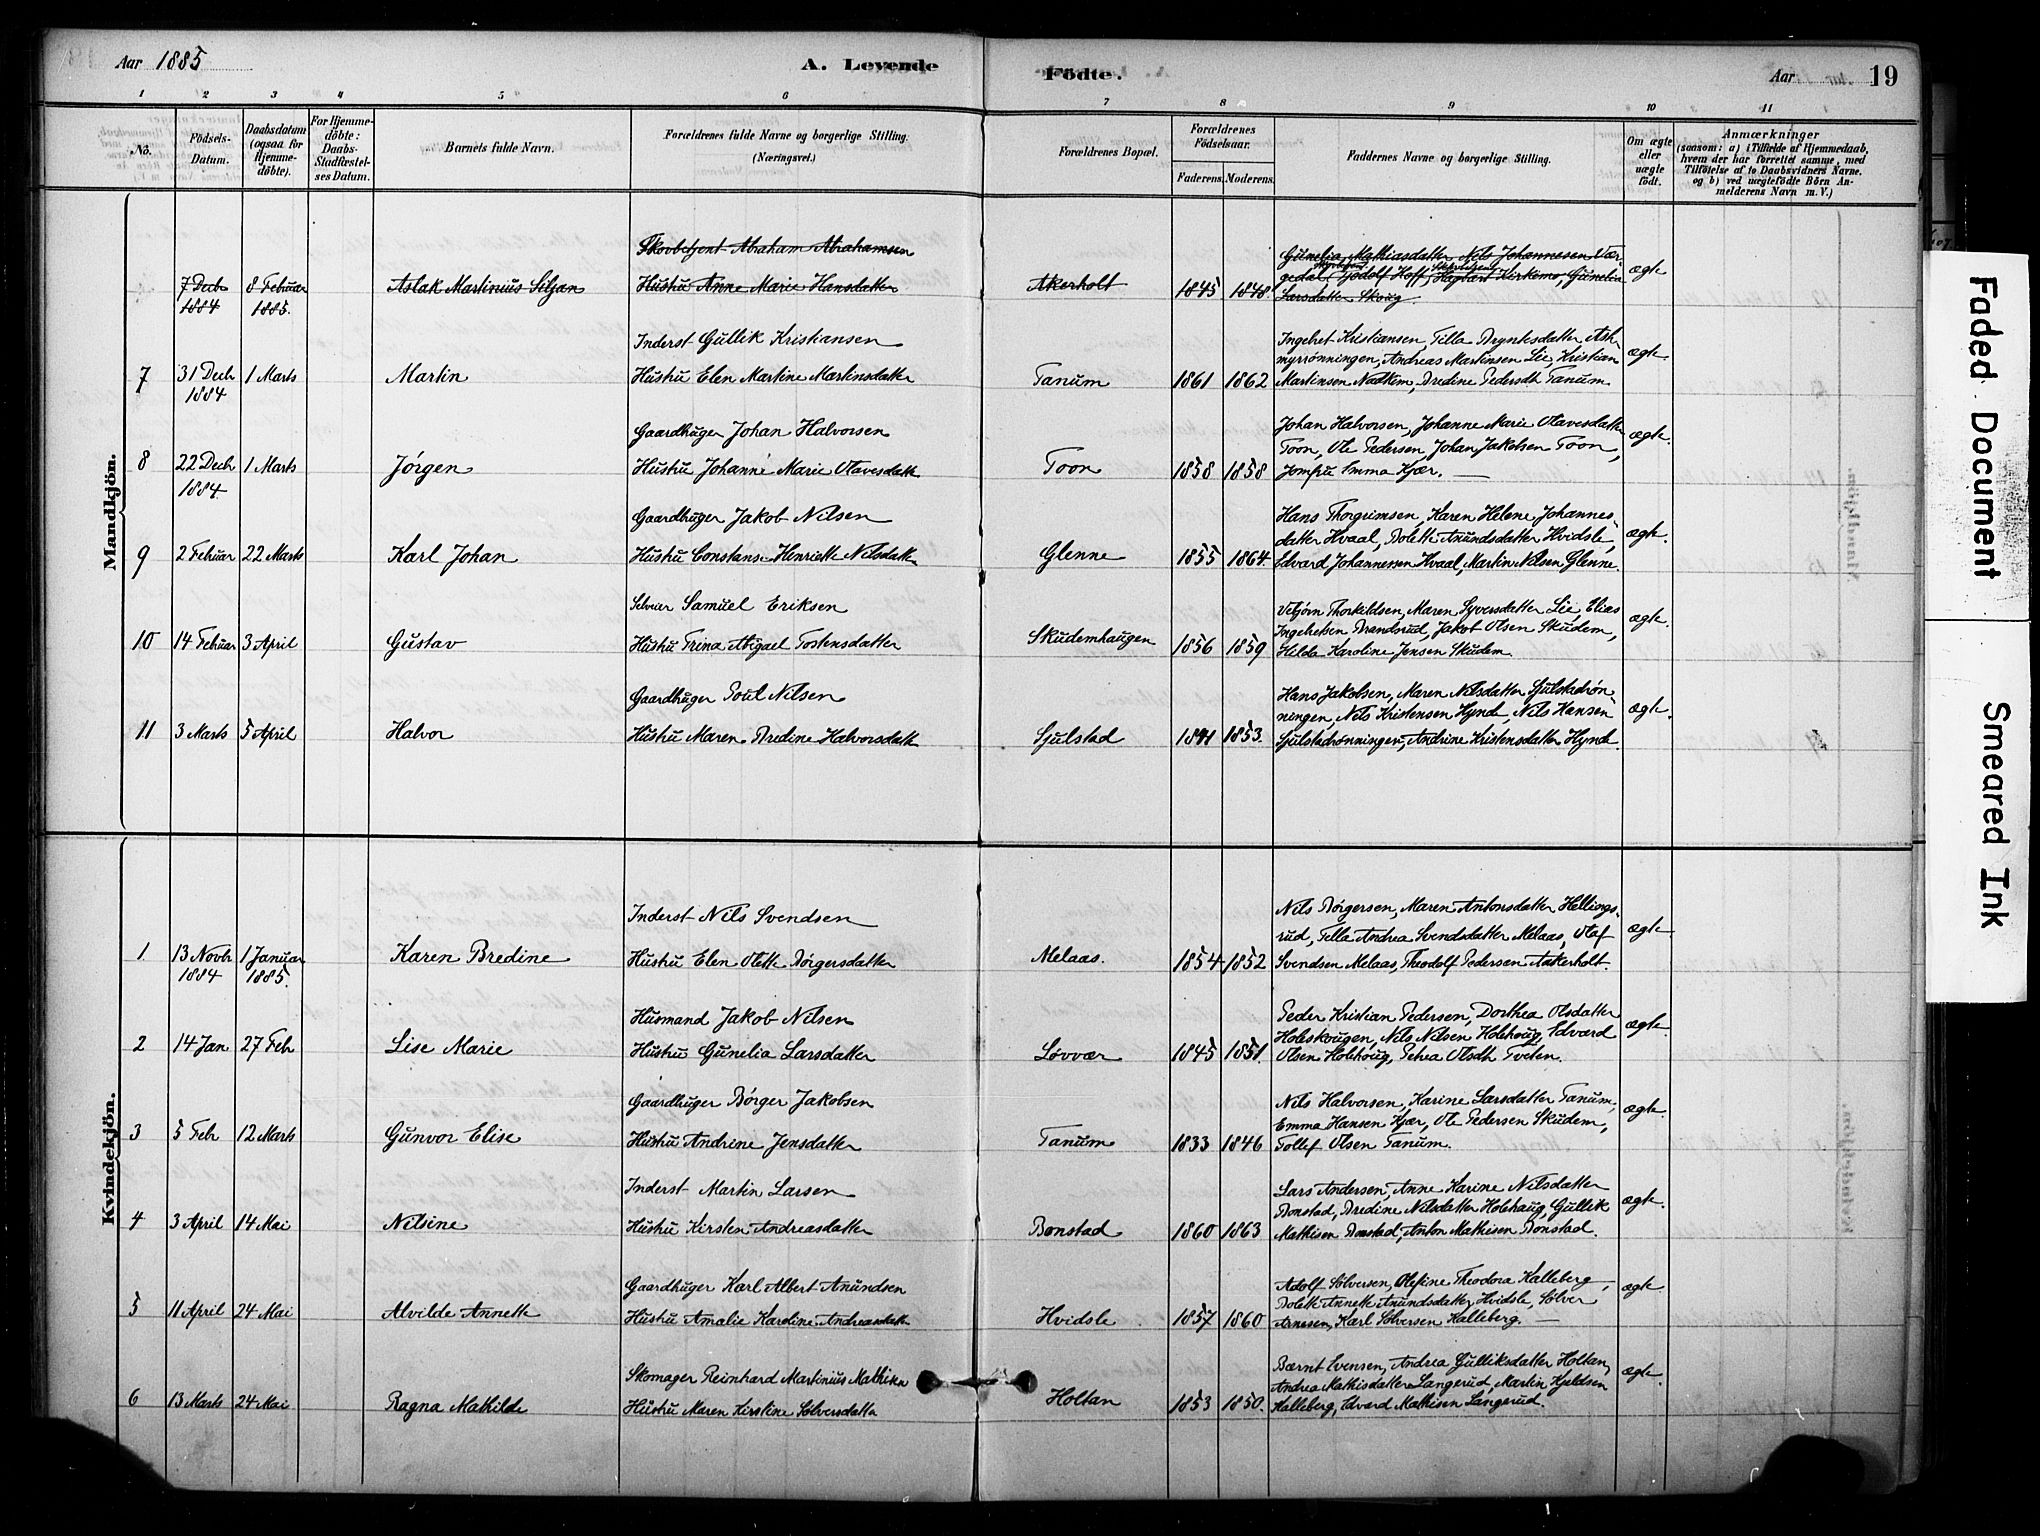 Aar 1885
A. Levende
Födte.
Aar
19
1 2 3 4 5 6 7 8 9 10 11
No.
Födsels-Datum.
Daabsdatum (ogsaa for Hjemme-döbte).
For Hjemme-döbte: Daabs-Stadfæstel-ses Datum.
Barnets fulde Navn.
Forældrenes fulde Navne og borgerlige Stilling. (Næringsvei.)
Forældrenes Bopæl.
Forældrenes Födselsaar.
Faderens. Moderens.
Faddernes Navne og borgerlige Stilling.
Om ægte eller uægte födt.
Anmærkninger
(saasom: a) i Tilfælde af Hjemmedaab,
hvem der har forrettet samme, med
Tilföielse af to Daabsvidners Navne,
og b) ved uægtefödte Börn An-
melderens Navn m. V.)
Mandkjön.
Skovbetjent Abraham Abrahamsen
7 Decb 8 Februar Aslak Martinius Siljan Hustru Anne Marie Hansdatter Akerholt 1845 1848
1884 1885.
Gunelia Mathiasdatter Nils Johannesen Vær-
gedal, Tjodolf Hoff, Hagbart Kirkomo, Gunelia
Larsdatter Skoug.
ægte
Inderst Gullik Kristiansen
7 31 Decb 1 Marts Martin Hustru Elen Martine Martinsdatter Tanum 1861 1862
1884
Ingebret Kristiansen, Tilla Bryntesdatter Ask-
myrrønningen, Andreas Martinsen Lie, Kristian
Martinsen Nadkim, Bredine Pedersdt Tanum
ægte.
Gaardbruger Johan Halvorsen
8 22 Decb 1 Marts Jörgen Hustru Johanne Marie Olavesdatt Toon 1858 1858
1884.
Johan Halvorsen, Johanne Marie Olavesdatter
Toon, Ole Pedersen, Johan Jakobsen Toon,
Jomfru Emma Kjær. —
ægte.
Gaardbruger Jakob Nilsen
9 2 Februar 22 Marts Karl Johan Hustru Constanse Henriette Nilsdatt Glenne 1855 1864.
Hans Thorgrimsen, Karen Helene Johannes-
datter Hvaal, Bolette Anundsdatter Hvidsle,
Edvard Johannesen Hvaal, Martin Nilsen Glenne.
ægte.
Selveier Samuel Eriksen
10 14 Februar 3 April Gustav Hustru Trina Abigael Tostensdatter Skudemhaugen 1856 1859
Vebjørn Thorkildsen, Maren Syversdatter Lie, Elias
Ingebretsen Brandsrud, Jakob Olsen Skudem,
Hilda Karoline Jensen Skudem.
ægte.
Gaardbruger Poul Nilsen
11 3 Marts 5 April Halvor Hustru Maren Bredine Halvorsdatt Sjulstad 1841 1853.
Hans Jakobsen, Maren Nilsdatter Sjulstadrøn-
ningen, Nils Kristensen Hynde, Nils Hansen
Sjulstadrønningen, Andrine Kristensdatter Hynde.
ægte.
Kvindekjön.
Inderst Nils Svendsen
1 13 Novb 1 Januar Karen Bredine Hustru Elen Olette Börgersdatter Melaas. 1854 1852
1884 1885.
Nils Börgersen, Maren Antonsdatter Hellings-
rud, Tella Andrea Svendsdatter Melaas, Olaf
Svendsen Melaas, Theodolf Pedersen Aakerholt.
ægte.
Husmand Jakob Nilsen
2 14 Jan 27 Febr Lise Marie Hustru Gunelia Larsdatter Lövvær 1845 1851.
Peder Kristian Pedersen, Dorthea Olsdatter
Holeskougen, Nils Nilsen Holehoug, Edvard
Olsen Holehoug, Petrea Olsdt Tveten.
ægte.
Gaardbruger Börger Jakobsen
3 5 Febr 12 Marts Gunvor Elise Hustru Andrine Jensdatter Tanum 1833 1846
Nils Halvorsen, Karine Larsdatter Tanum,
Emma Hansen Kjær, Ole Pedersen Skudem,
Tollef Olsen Tanum.
ægte.
Inderst Martin Larsen
4 3 April 14 Mai Nilsine Hustru Kirsten Andreasdatter Bonstad 1860 1863
Lars Andersen, Anne Karine Nilsdatter
Bonstad, Bredine Nilsdatter Holehaug, Gullik
Mathisen Bonstad, Anton Mathisen Bonstad.
ægte.
Gaardbruger Karl Albert Anundsen
5 11 April 24 Mai Alvilde Annette Hustru Amalie Karoline Andreasdatt Hvidsle 1857 1860
Adolf Sølversen, Olefine Theodora Kalleberg,
Bolette Annette Anundsdatter Hvidsle, Sølver
Arnesen, Karl Sølversen Kalleberg. —
ægte.
Skomager Reinhard Martinius Mathisen
6 13 Marts 24 Mai Ragna Mathilde Hustru Maren Kirstine Sølversdatter Holtan 1853 1850.
Bærnt Evensen, Andrea Gulliksdatter Holtan,
Andrea Mathisdatter Langerud, Martin Kjeldsen
Kalleberg, Edvard Mathisen Langerud.
ægte.
Faded Document
Smeared Ink